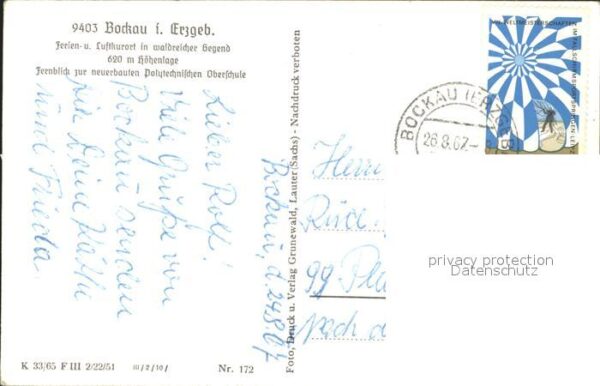 9403 Bockau i. Erzgeb.
Ferien- u. Luftkurort in waldreicher Gegend
620 m Höhenlage
Fernblick zur neuerbauten Polytechnischen Oberschule
Bockau, d. 24.8.67
Lieber Rolf!
Viele Grüße von
Bockau senden
Dir Deine Käthe
und Frieda.
K 33/65 F III 2/22/51 III/2/10/ Nr. 172
Foto, Druck u. Verlag Grunewald, Lauter (Sachs) - Nachdruck verboten
VIII. WELTMEISTERSCHAFTEN IM FALLSCHIRMSPORTSPRINGEN LEIPZ
BOCKAU (ERZGEB
26.8.67
Herrn
99
Nach
privacy protection
Datenschutz